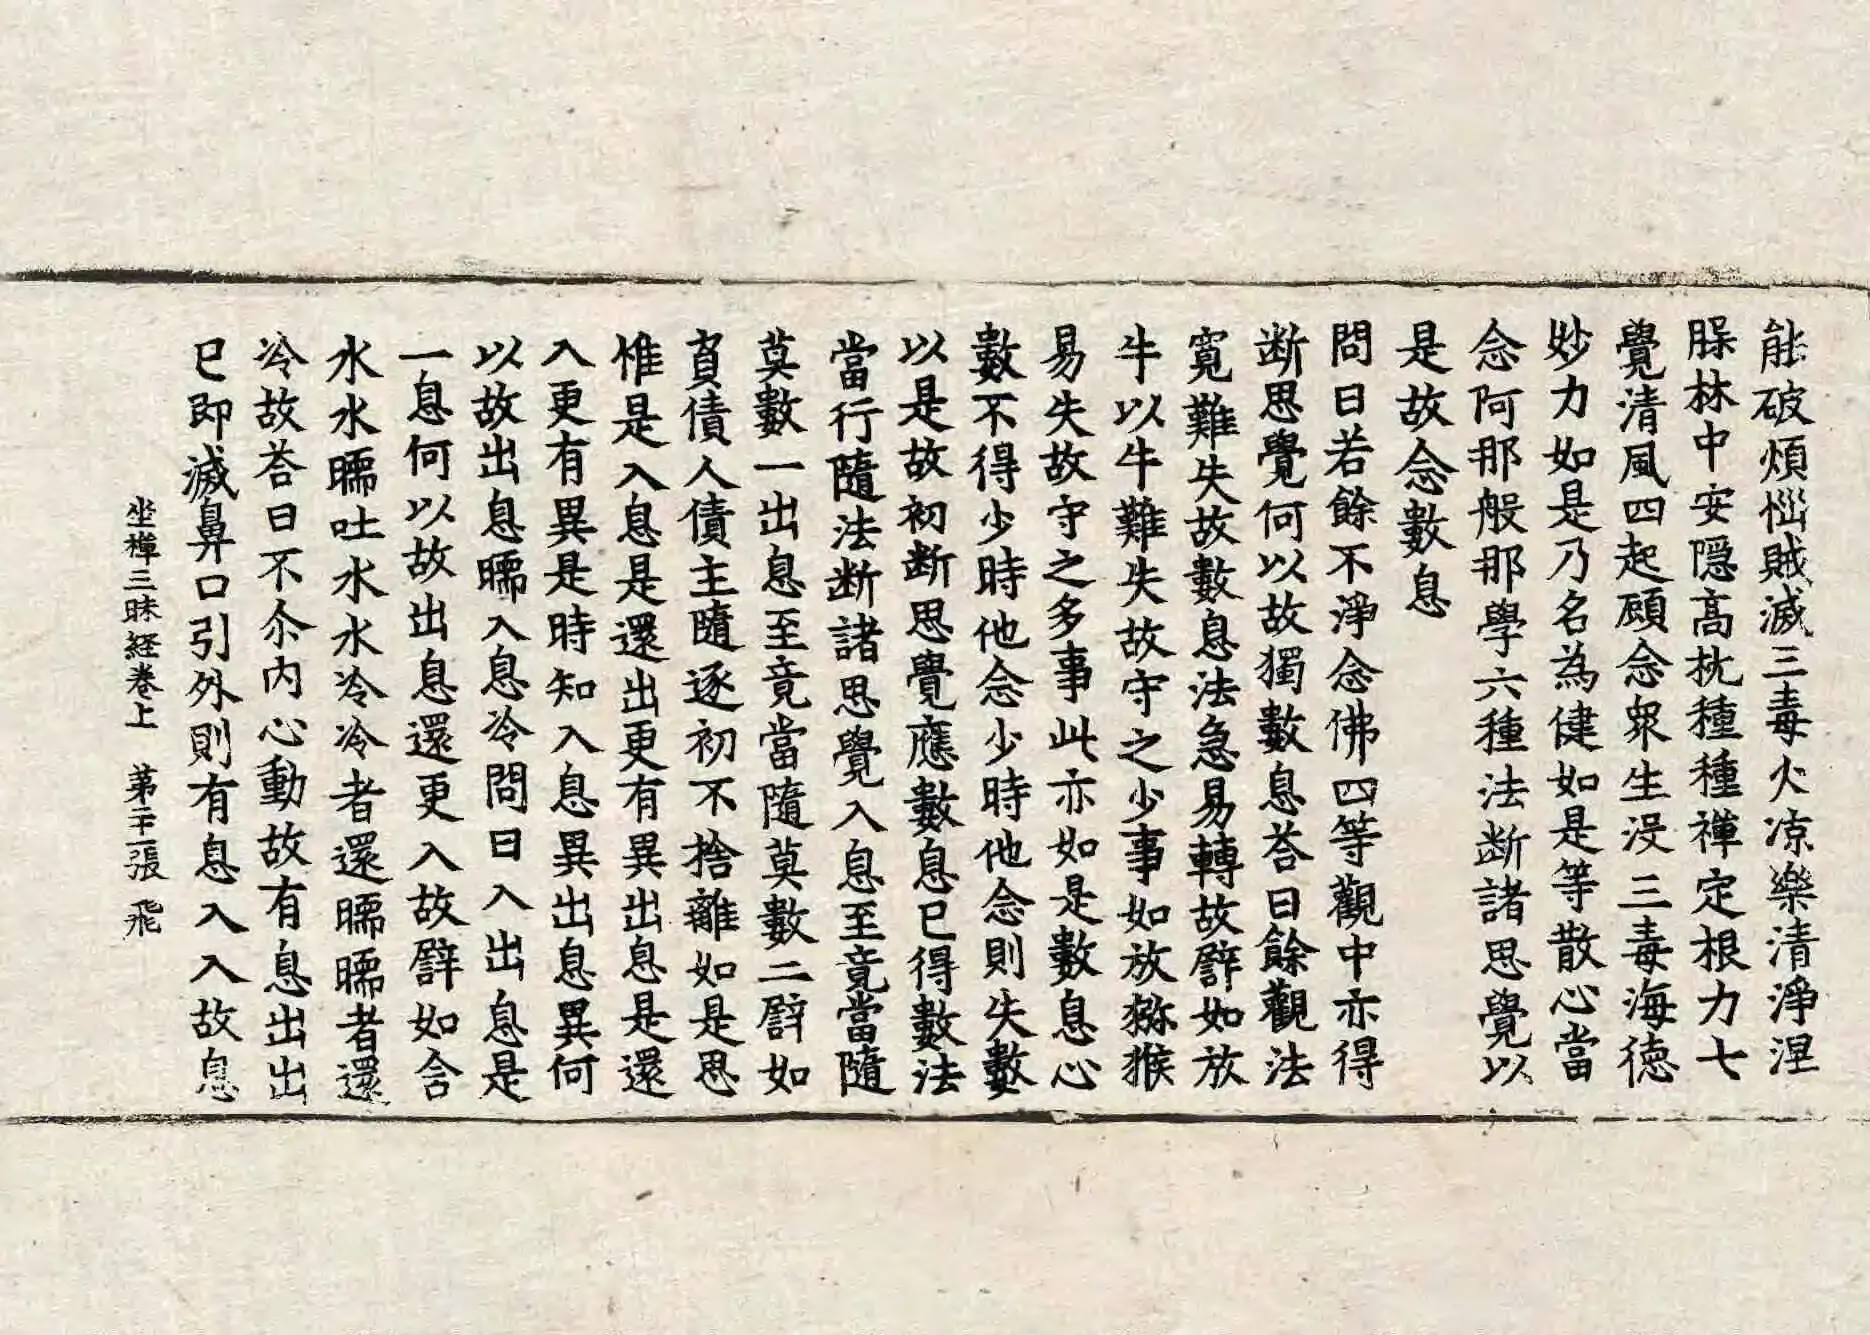 能破煩惱賊滅三毒火凉樂清淨涅
槃林中安隱高枕種種禪定根力七
覺清風四起顧念衆生没三毒海德
妙力如是乃名為健如是等散心當
念阿那般那學六種法断諸思覺以
是故念數息
問曰若餘不淨念佛四等觀中亦得
断思覺何以故獨數息荅曰餘觀法
寬難失故數息法急易轉故譬如放
牛以牛難失故守之少事如放獼猴
易失故守之多事此亦如是數息心
數不得少時他念少時他念則失數
以是故初断思覺應數息已得數法
當行隨法断諸思覺入息至竟當隨
莫數一出息至竟當隨莫數二譬如
負債人債主隨逐初不捨離如是思
惟是入息是還出更有異出息是還
入更有異是時知入息異出息異何
以故出息暖入息冷問曰入出息是
一息何以故出息還更入故譬如含
水水暖吐水水冷冷者還暖暖者還
冷故荅曰不尒内心動故有息出出
已即滅鼻口引外則有息入入故息
坐禪三昧経卷上 第二十二張 飛